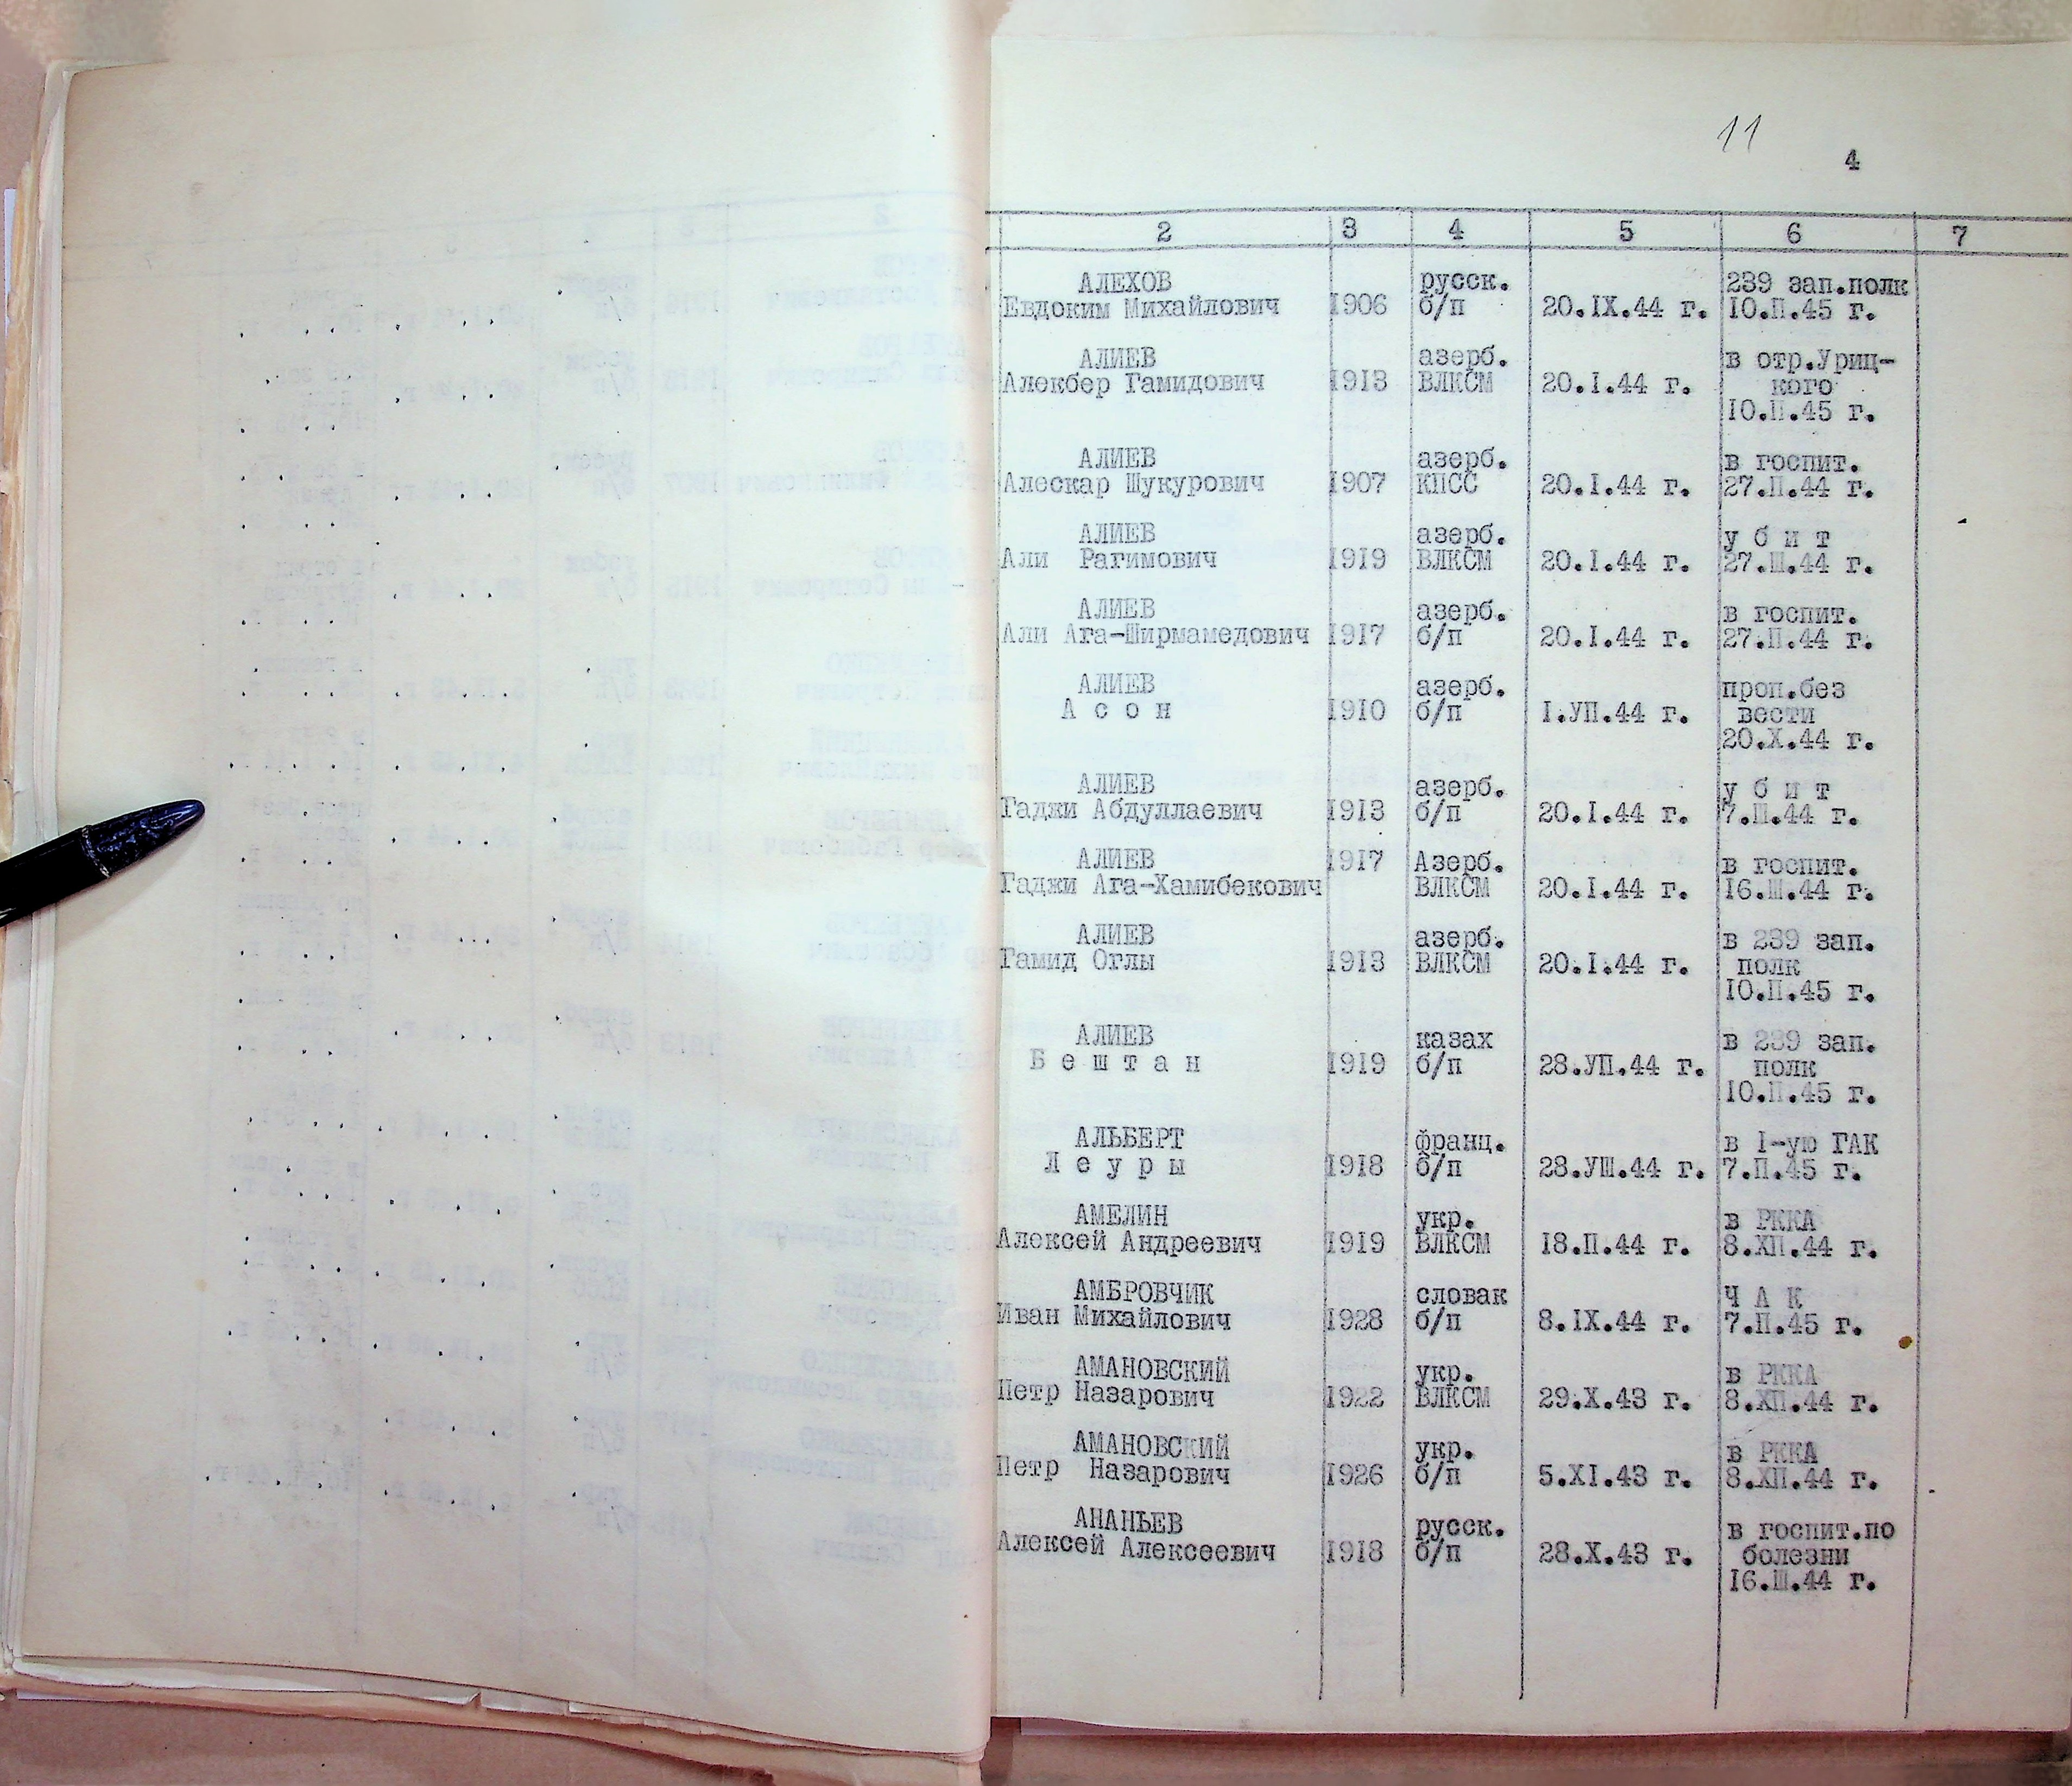 11
4
2 3 4 5 6 7
АЛЕХОВ русск. 239 зап.полк
Евдоким Михайлович 1906 б/п 20.IX.44 г. 10.П.45 г.
АЛИЕВ азерб. в отр.Уриц-
Алекбер Гамидович 1913 ВЛКСМ 20.I.44 г. кого
10.П.45 г.
АЛИЕВ азерб. в госпит.
Алескар Шукурович 1907 КПСС 20.I.44 г. 27.П.44 г.
АЛИЕВ азерб. у б и т
Али Рагимович 1919 ВЛКСМ 20.I.44 г. 27.Ш.44 г.
АЛИЕВ азерб. в госпит.
Али Ага-Ширмамедович 1917 б/п 20.I.44 г. 27.П.44 г.
АЛИЕВ азерб. проп.без
А с о н 1910 б/п I.УП.44 г. вести
20.X.44 г.
АЛИЕВ азерб. у б и т
Гаджи Абдуллаевич 1913 б/п 20.I.44 г. 7.Ш.44 г.
АЛИЕВ 1917 Азерб. в госпит.
Гаджи Ага-Хамибекович ВЛКСМ 20.I.44 г. 16.Ш.44 г.
АЛИЕВ азерб. в 239 зап.
Гамид Оглы 1913 ВЛКСМ 20.I.44 г. полк
10.П.45 г.
АЛИЕВ казах в 239 зап.
Б е ш т а н 1919 б/п 28.УП.44 г. полк
10.П.45 г.
АЛЬБЕРТ франц. в I-ую ГАК
Л е у р ы 1918 б/п 28.УШ.44 г. 7.П.45 г.
АМЕЛИН укр. в РККА
Алексей Андреевич 1919 ВЛКСМ 18.П.44 г. 8.ХП.44 г.
АМБРОВЧИК словак Ч А К
Иван Михайлович 1928 б/п 8.IX.44 г. 7.П.45 г.
АМАНОВСКИЙ укр. в РККА
Петр Назарович 1922 ВЛКСМ 29.X.43 г. 8.ХП.44 г.
АМАНОВСКИЙ укр. в РККА
Петр Назарович 1926 б/п 5.XI.43 г. 8.ХП.44 г.
АНАНЬЕВ русск. в госпит.по
Алексей Алексеевич 1918 б/п 28.X.43 г. болезни
16.Ш.44 г.